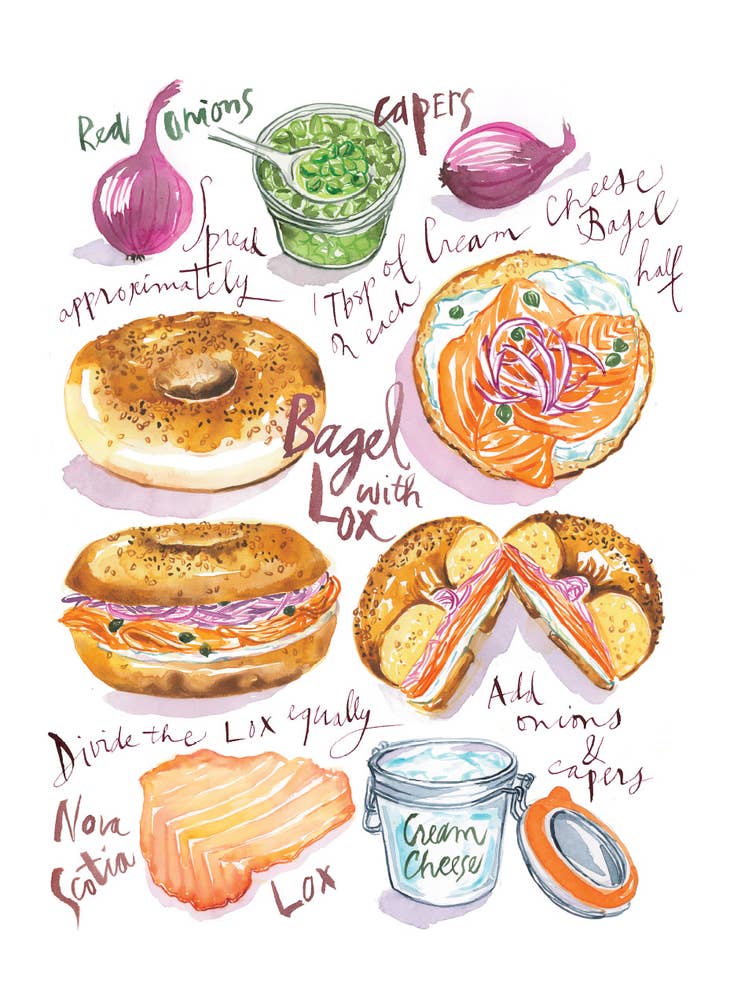 Red Onions
Capers
Spread
approximately
1 Tbsp of Cream Cheese
2 each Bagel
half
Bagel
with
Lox
Divide the Lox equally
Add
onions
&
capers
Nova
Scotia
Lox
Cream
Cheese